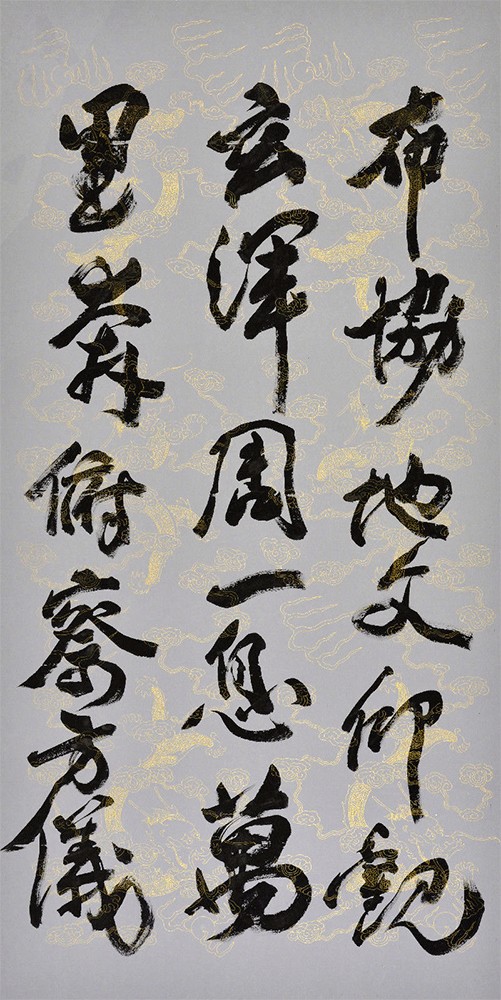 布協地文仰觀
玄渾周一息萬
里奔俯察方儀